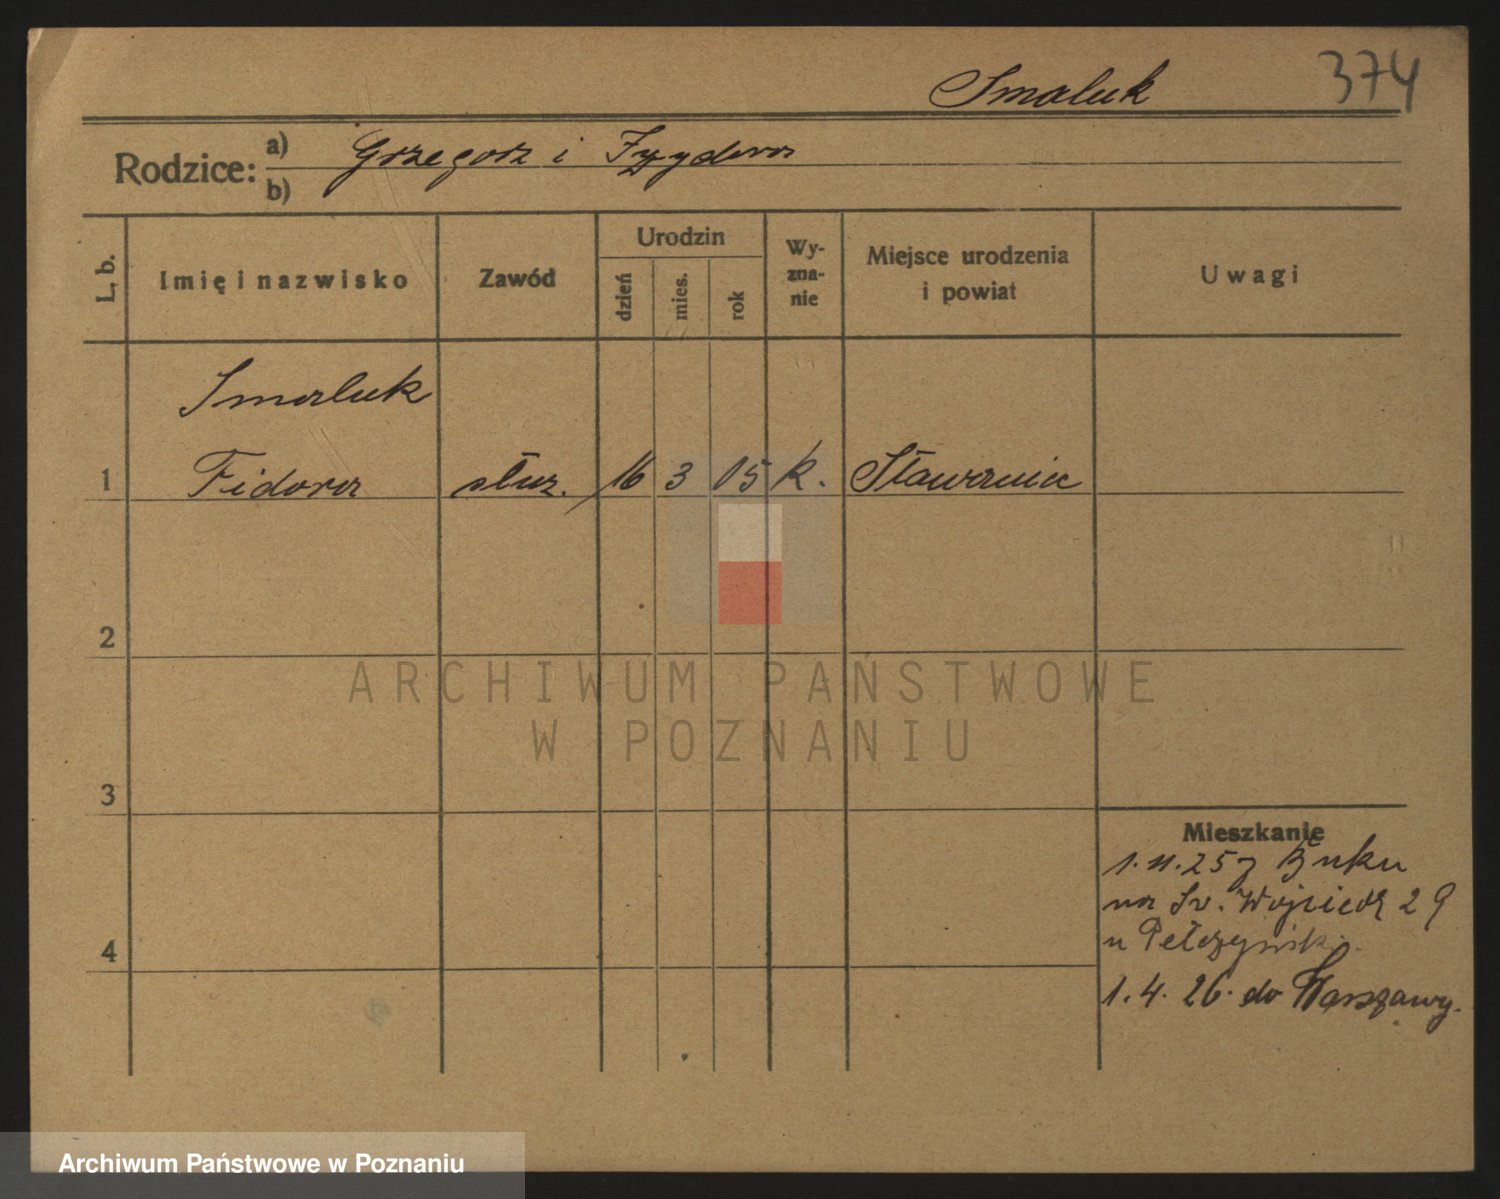 Smaluk 374
Rodzice: a) Grzegorz i Izydora
b)
L. b. Imię i nazwisko Zawód Urodzin dzień mies. rok Wy-zna-nie Miejsce urodzenia i powiat Uwagi
Smaluk
1 Fidora służ. 16 3 05 k.
2
3
4
Mieszkanie
1. 11. 25 z Buku
na Św. Wojciech 29
u
1. 4. 26. do Warszawy.
ARCHIWUM PAŃSTWOWE
W POZNANIU
Archiwum Państwowe w Poznaniu